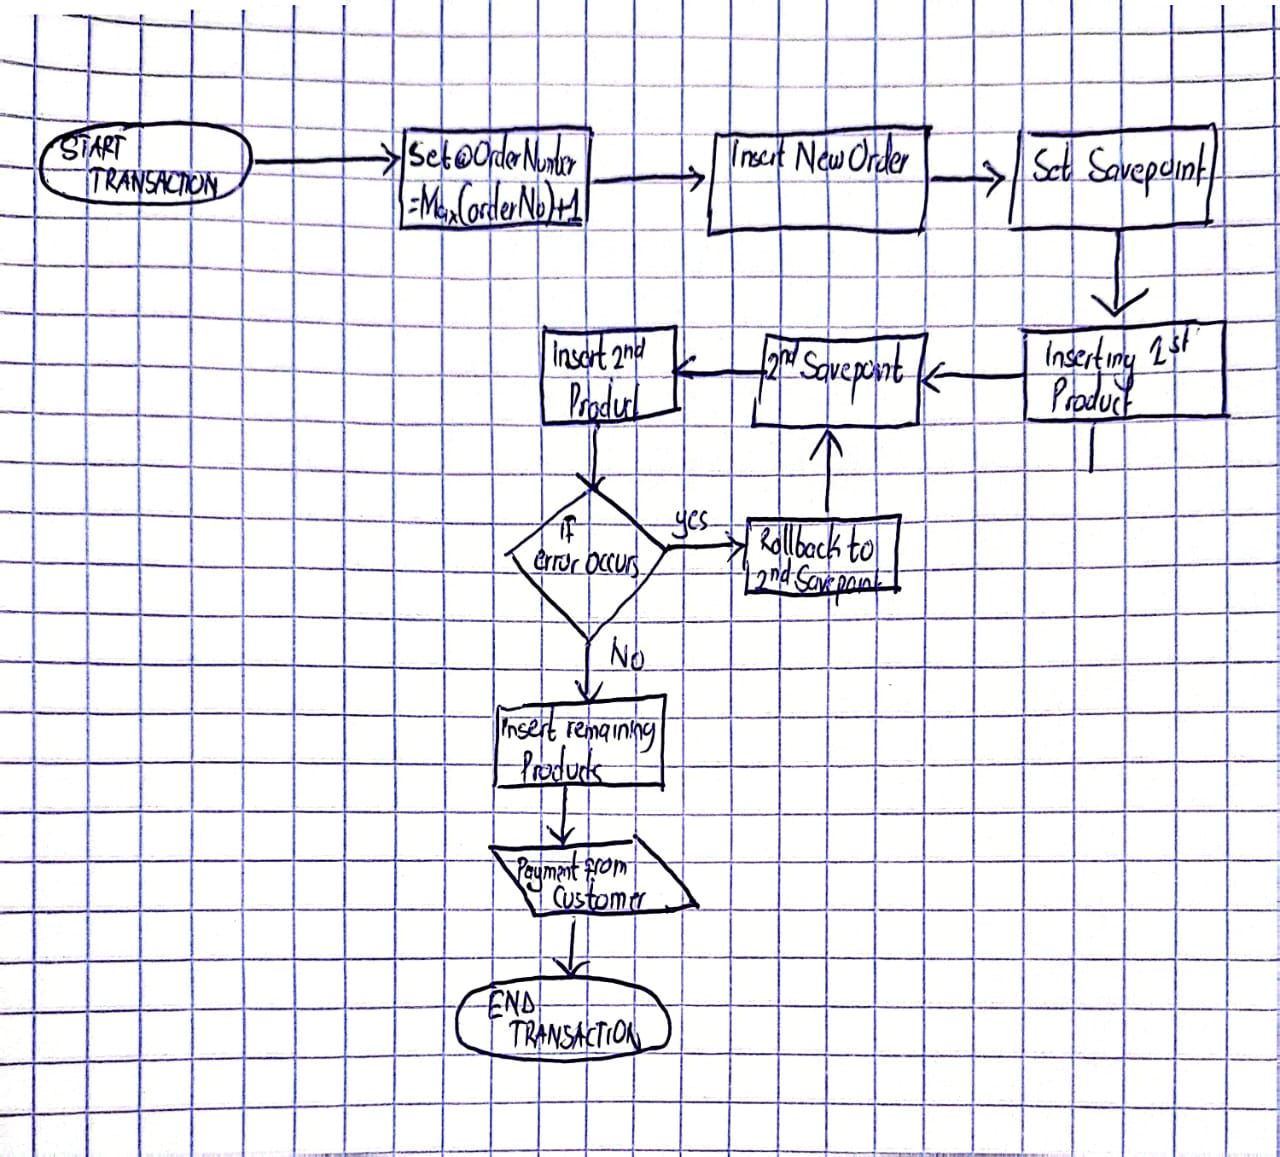 START
TRANSACTION
Set@OrderNumber
=Max(orderNo)+1
Insert New Order
Set Savepoint
Insert 2nd
Product
2nd Savepoint
Inserting 1st
Product
If
error occurs
yes
Rollback to
2nd Savepoint
No
Insert remaining
Products
Payment from
Customer
END
TRANSACTION